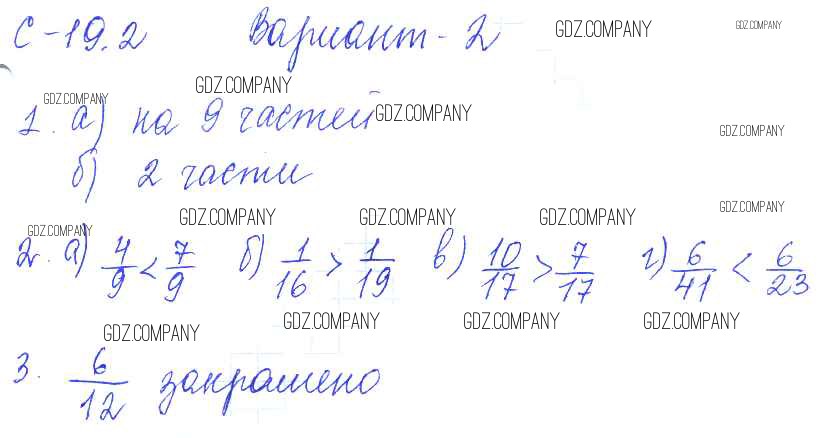 С-19.2 Вариант-2 GDZ.COMPANY GDZ.COMPANY
GDZ.COMPANY GDZ.COMPANY
1. а) на 9 частей GDZ.COMPANY GDZ.COMPANY
б) 2 части
GDZ.COMPANY GDZ.COMPANY GDZ.COMPANY GDZ.COMPANY GDZ.COMPANY
2. а) 4/9 < 7/9 б) 1/16 > 1/19 в) 10/17 > 7/17 г) 6/41 < 6/23
GDZ.COMPANY GDZ.COMPANY GDZ.COMPANY GDZ.COMPANY
3. 6/12 закрашено